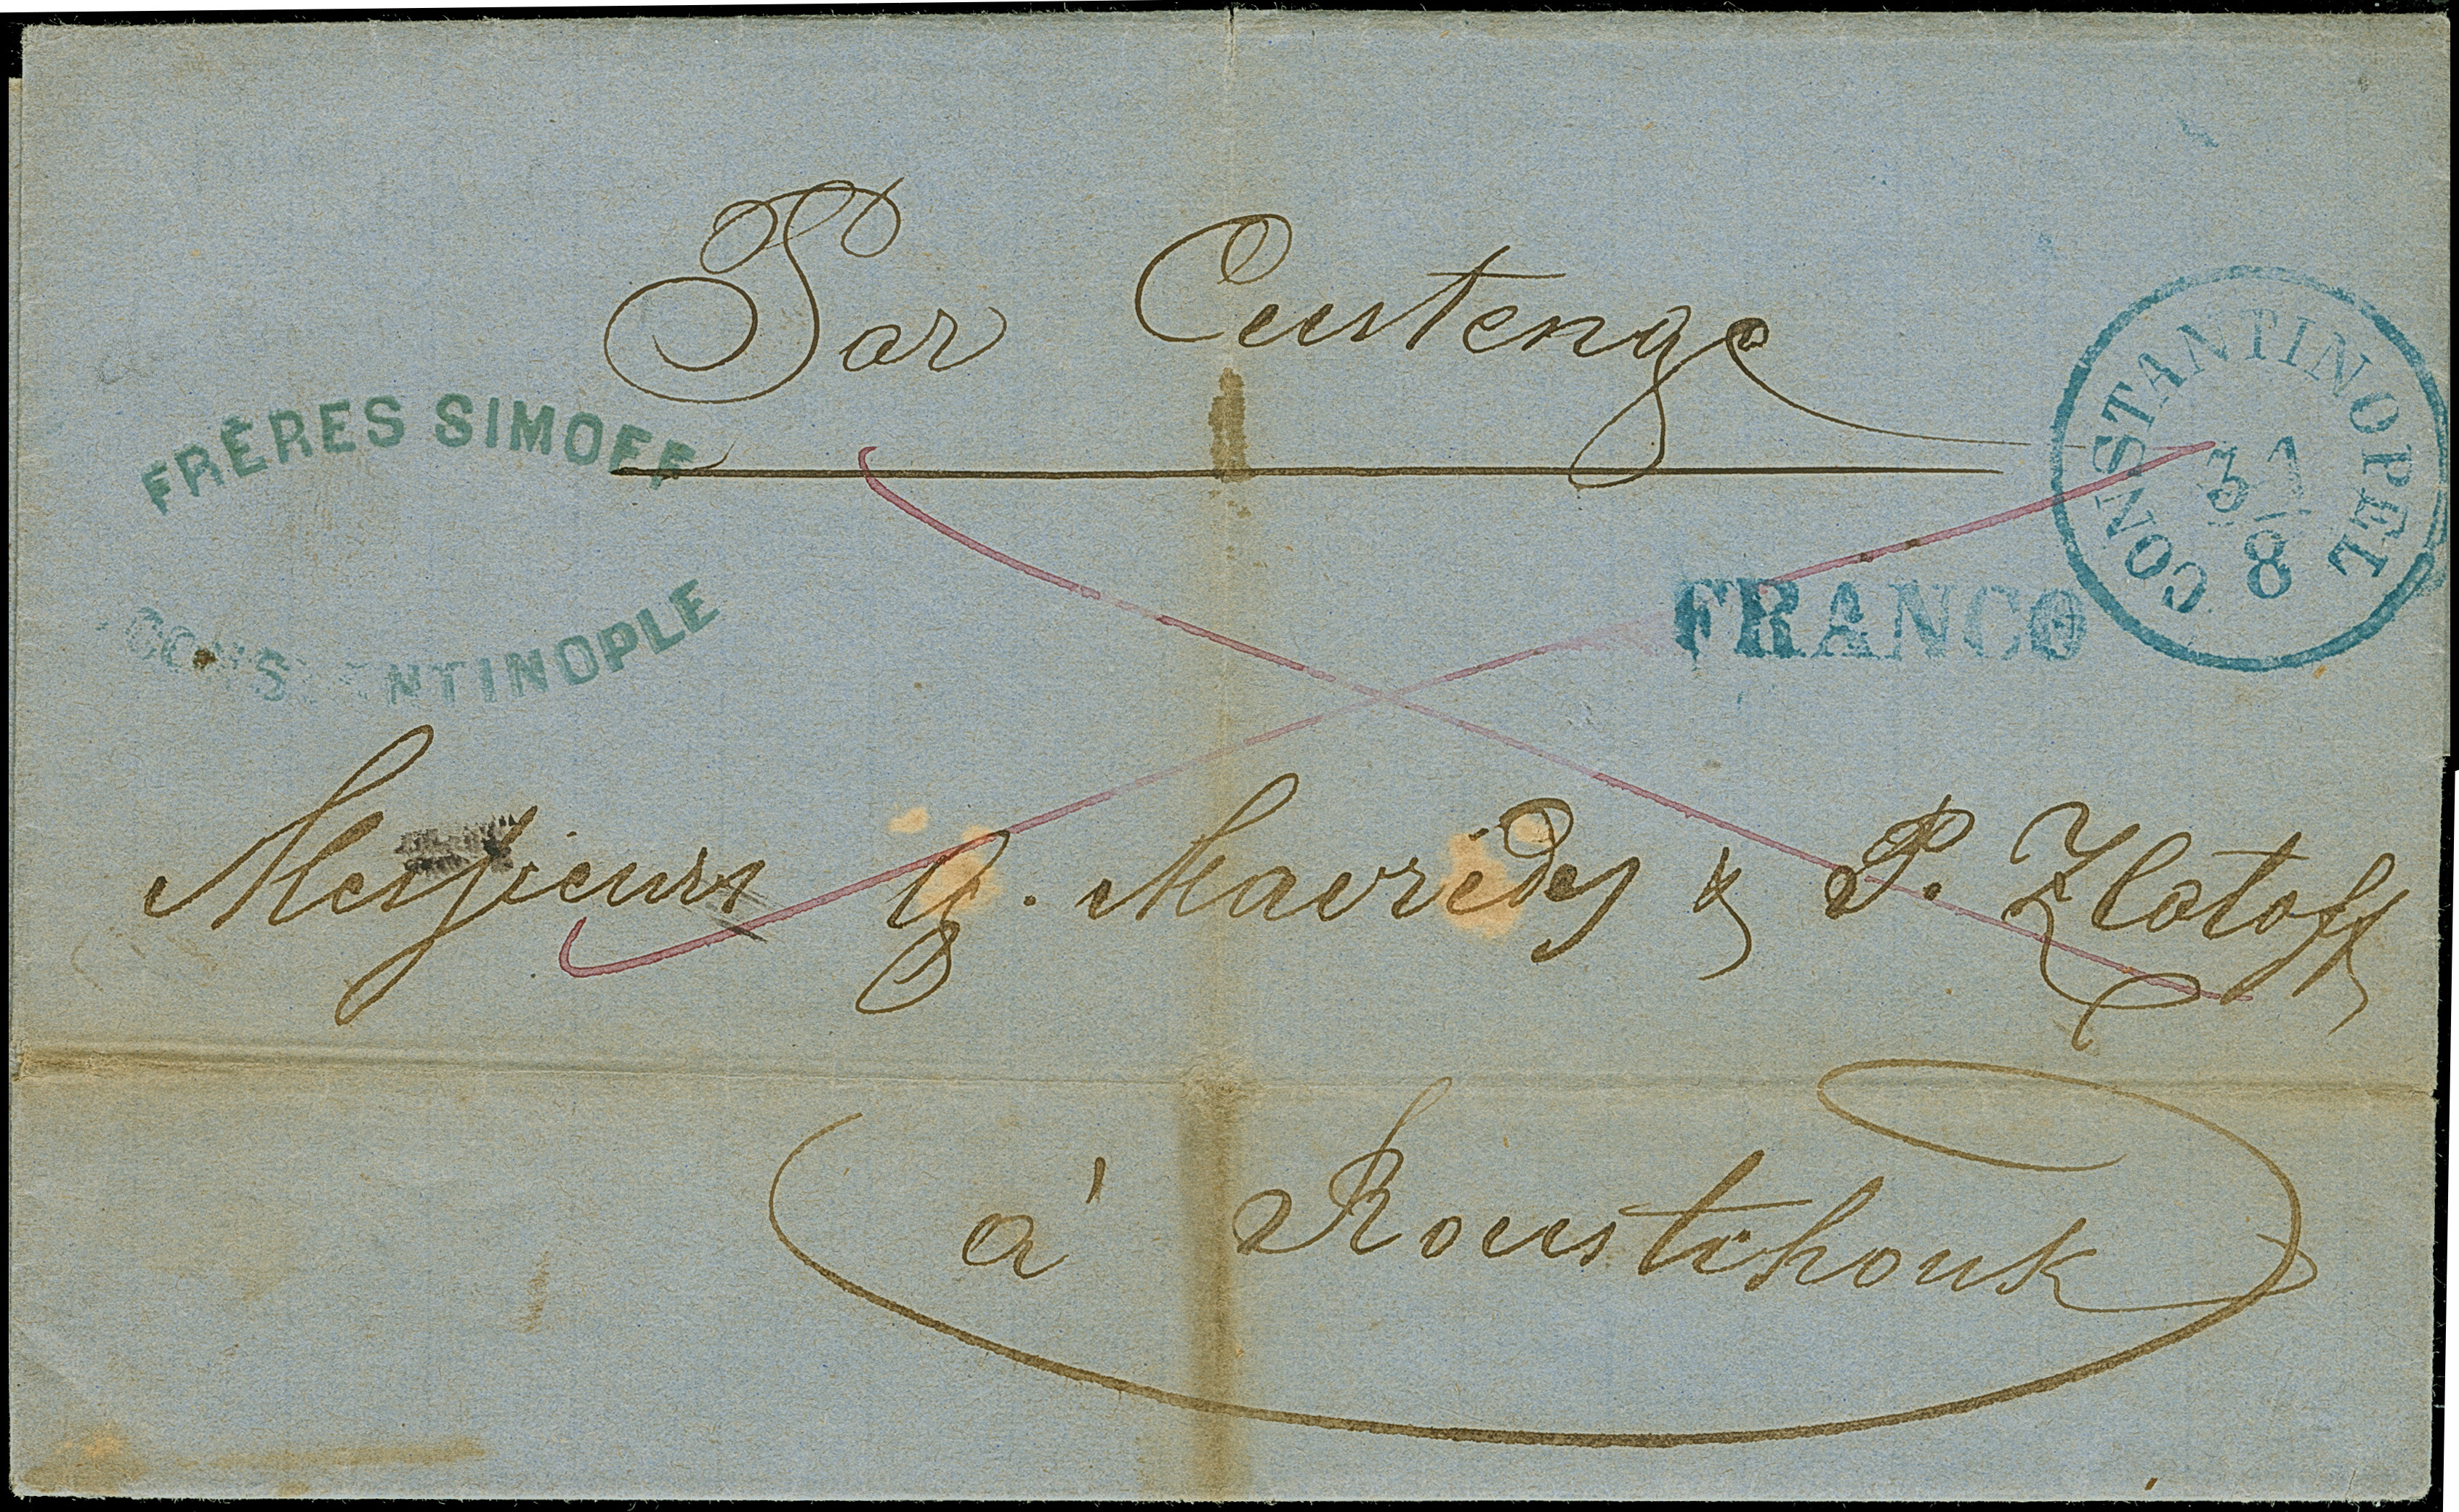 Par Custenge
FRÈRES SIMOFF
CONSTANTINOPLE
CONSTANTINOPEL
31
8
FRANCO
Messieurs Mavrides & P. Zlatoff
à Roustchouk